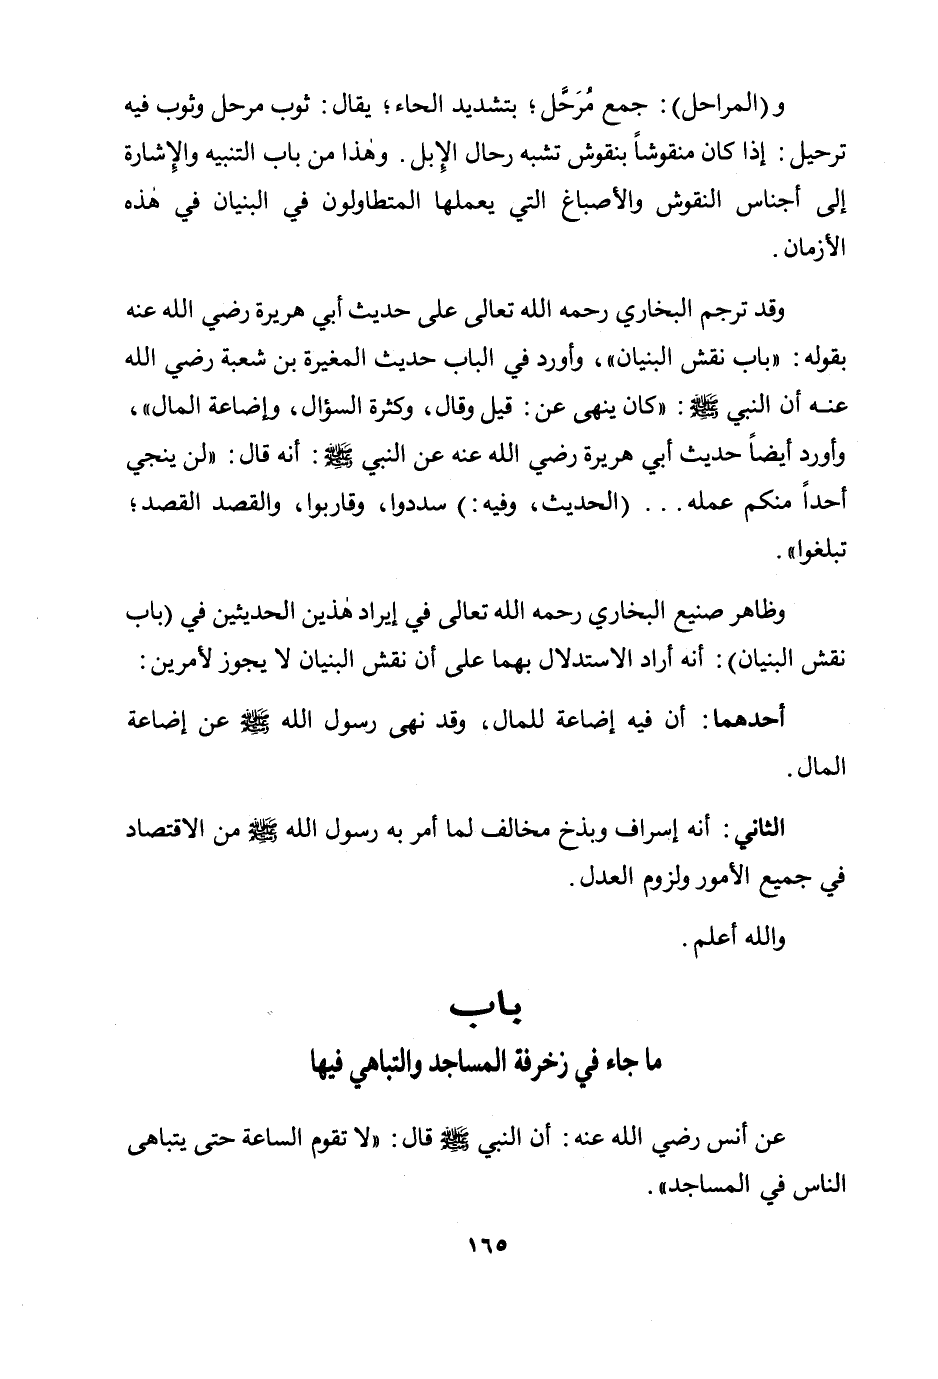 و(المراحل): جمع مُرَحَّل؛ بتشديد الحاء؛ يقال: ثوب مرحل وثوب فيه
ترحيل: إذا كان منقوشاً بنقوش تشبه رحال الإبل. وهٰذا من باب التنبيه والإشارة
إلى أجناس النقوش والأصباغ التي يعملها المتطاولون في البنيان في هٰذه
الأزمان.
وقد ترجم البخاري رحمه الله تعالى على حديث أبي هريرة رضي الله عنه
بقوله: «باب نقش البنيان»، وأورد في الباب حديث المغيرة بن شعبة رضي الله
عنه أن النبي ﷺ: «كان ينهى عن: قيل وقال، وكثرة السؤال، وإضاعة المال»،
وأورد أيضاً حديث أبي هريرة رضي الله عنه عن النبي ﷺ: أنه قال: «لن ينجي
أحداً منكم عمله... (الحديث، وفيه:) سددوا، وقاربوا، والقصد القصد؛
تبلغوا».
وظاهر صنيع البخاري رحمه الله تعالى في إيراد هٰذين الحديثين في (باب
نقش البنيان): أنه أراد الاستدلال بهما على أن نقش البنيان لا يجوز لأمرين:
أحدهما: أن فيه إضاعة للمال، وقد نهى رسول الله ﷺ عن إضاعة
المال.
الثاني: أنه إسراف وبذخ مخالف لما أمر به رسول الله ﷺ من الاقتصاد
في جميع الأمور ولزوم العدل.
والله أعلم.
باب
ما جاء في زخرفة المساجد والتباهي فيها
عن أنس رضي الله عنه: أن النبي ﷺ قال: «لا تقوم الساعة حتى يتباهى
الناس في المساجد».
١٦٥